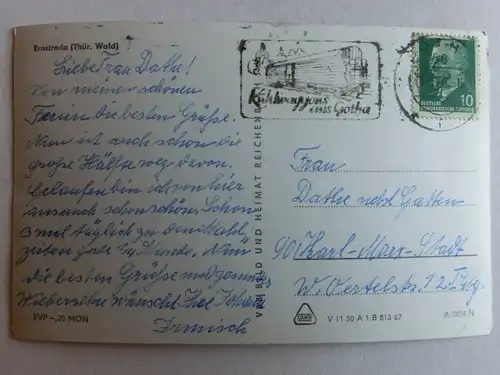 Ernstroda (Thür. Wald)
Liebe Frau Dathe!
Von meinen schönen
Ferien die besten Grüße.
Nun ist auch schon die
große Hälfte weg davon.
Gelaufen bin ich von hier
aus auch schon schön. Schon
3 mal täglich zu den Mahl
zeiten Stunde. Nun
die besten Grüße und
Wiedersehn wünscht Ihre
Irmisch
EVP –,20 MDN
VEB BILD UND HEIMAT REICHENBACH
Kühlwaggons
aus Gotha
DEUTSCHE
DEMOKRATISCHE REPUBLIK
10
Frau
Dathe nebst Gatten
90 Karl-Marx-Stadt
W. Oertelstr. 12
V 11 50 A 1.B 813 67